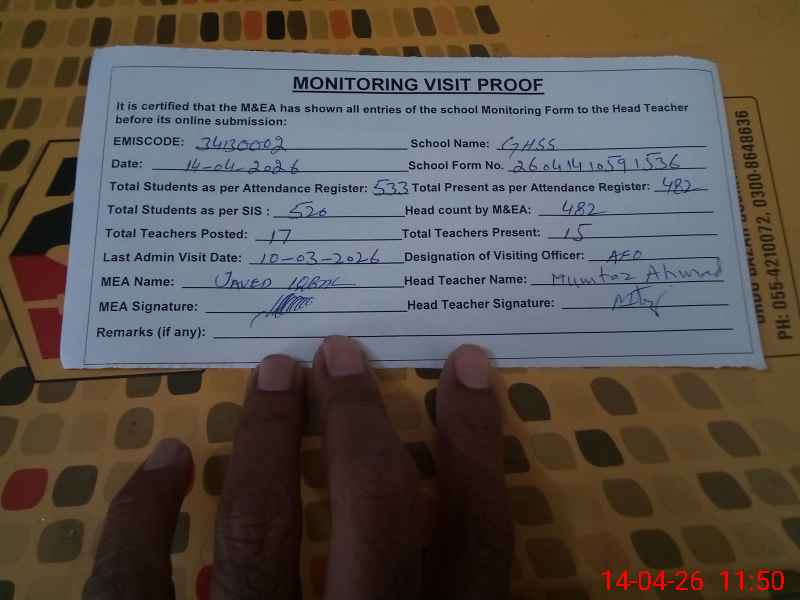 MONITORING VISIT PROOF
It is certified that the M&EA has shown all entries of the school Monitoring Form to the Head Teacher
before its online submission:
EMISCODE: 34130002 School Name: GHSS
Date: 14-04-2026 School Form No. 26041410591536
Total Students as per Attendance Register: 533 Total Present as per Attendance Register: 482
Total Students as per SIS : 520 Head count by M&EA: 482
Total Teachers Posted: 17 Total Teachers Present: 15
Last Admin Visit Date: 10-03-2026 Designation of Visiting Officer: AEO
MEA Name: JAVED IQBAL Head Teacher Name: Mumtaz Ahmad
MEA Signature: Head Teacher Signature:
Remarks (if any):
PH: 055-4210072, 0300-8648636
14-04-26 11:50